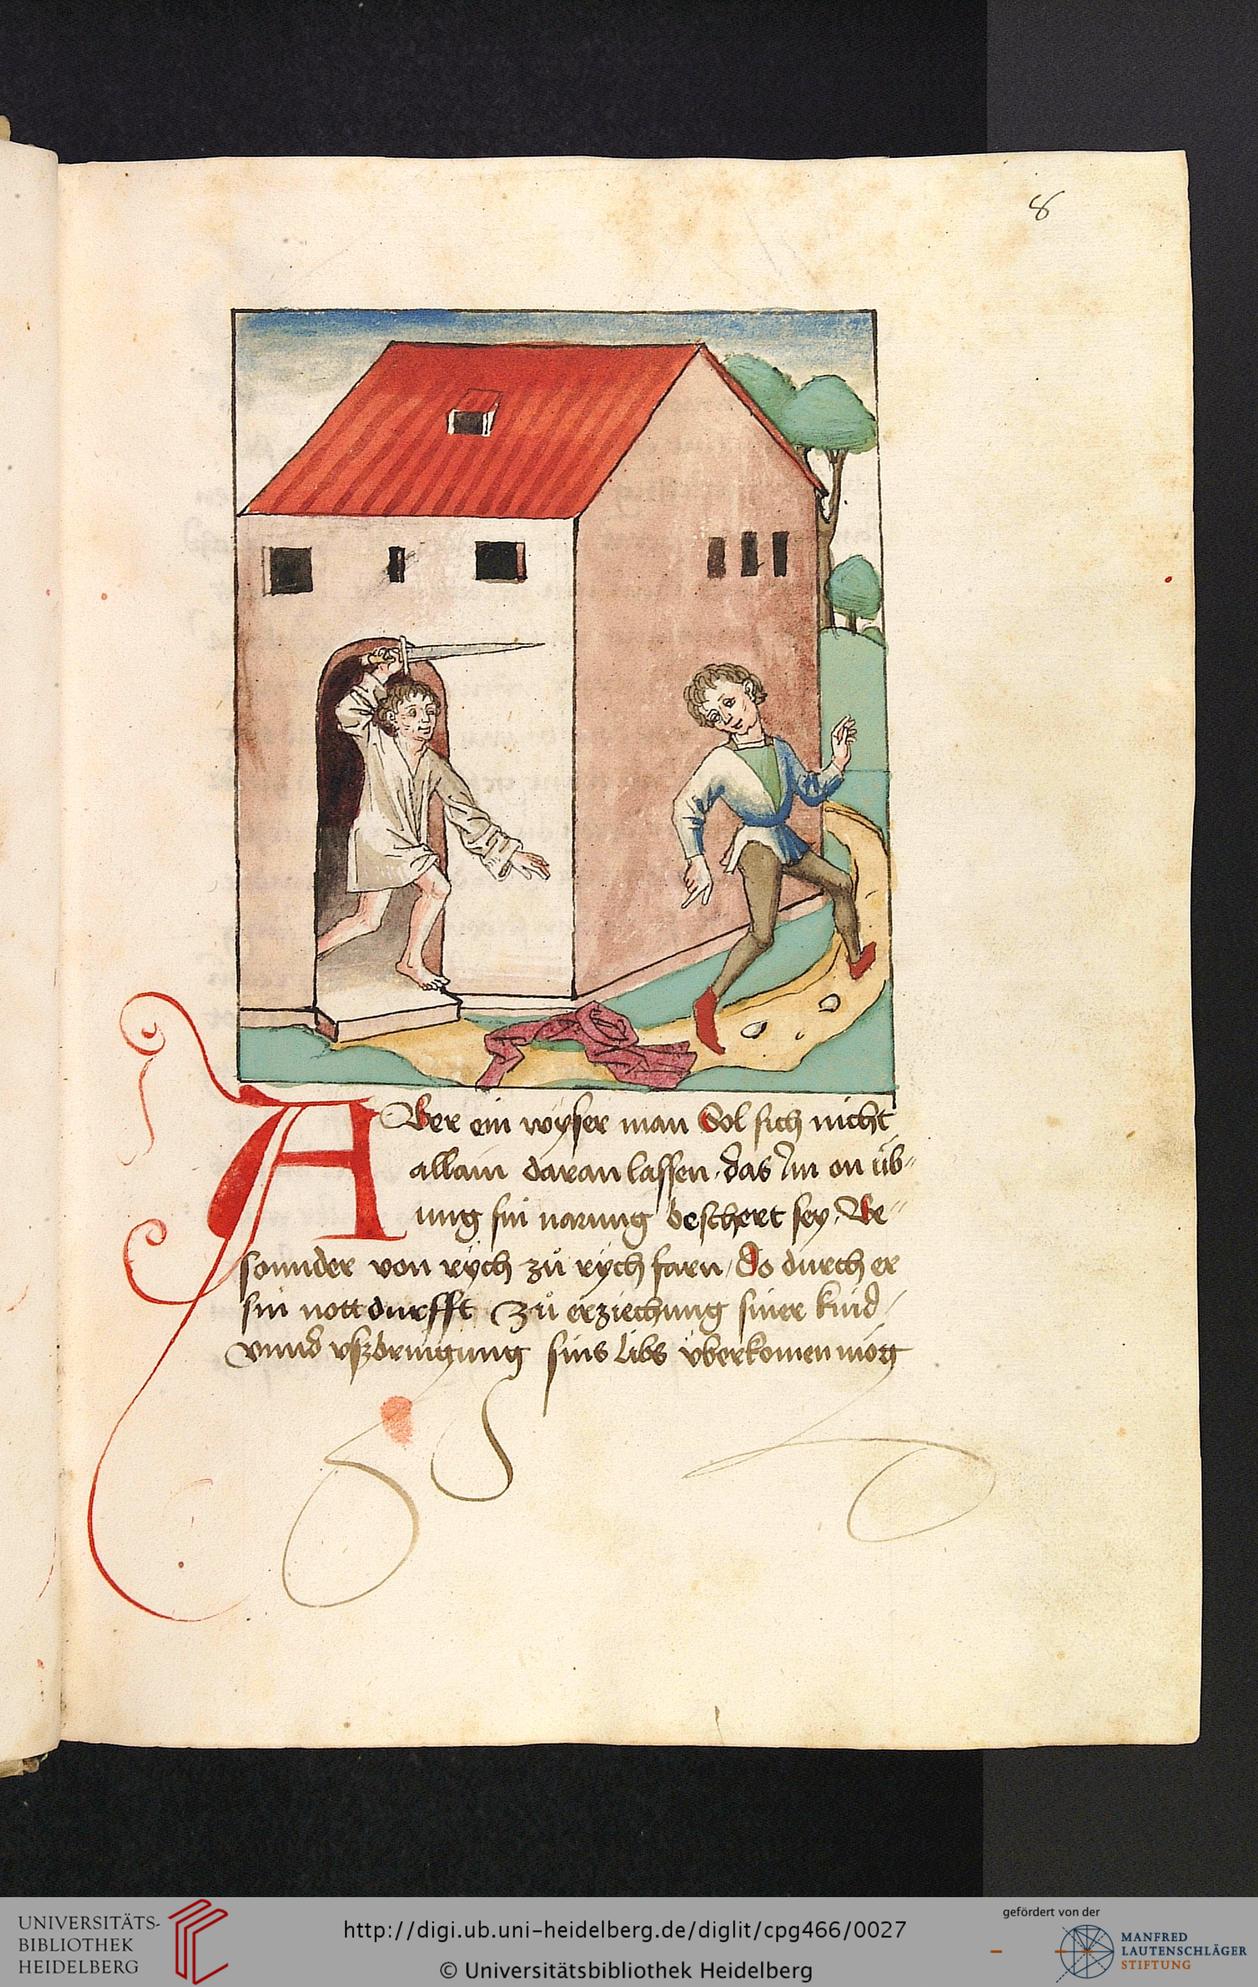 8
Aber ein wyser man Sol sich nicht
allain daran lassen, das Im on üb-
ung sin narung beschert sey, Be-
sonnder von rych zů rych farn, Do durch er
sin nottdurfft Zů erziechung siner kind,
vnnd vszbringung sins libs v̈berkomen mög
UNIVERSITÄTS-
BIBLIOTHEK
HEIDELBERG
http://digi.ub.uni-heidelberg.de/diglit/cpg466/0027
© Universitätsbibliothek Heidelberg
gefördert von der
MANFRED
LAUTENSCHLÄGER
STIFTUNG